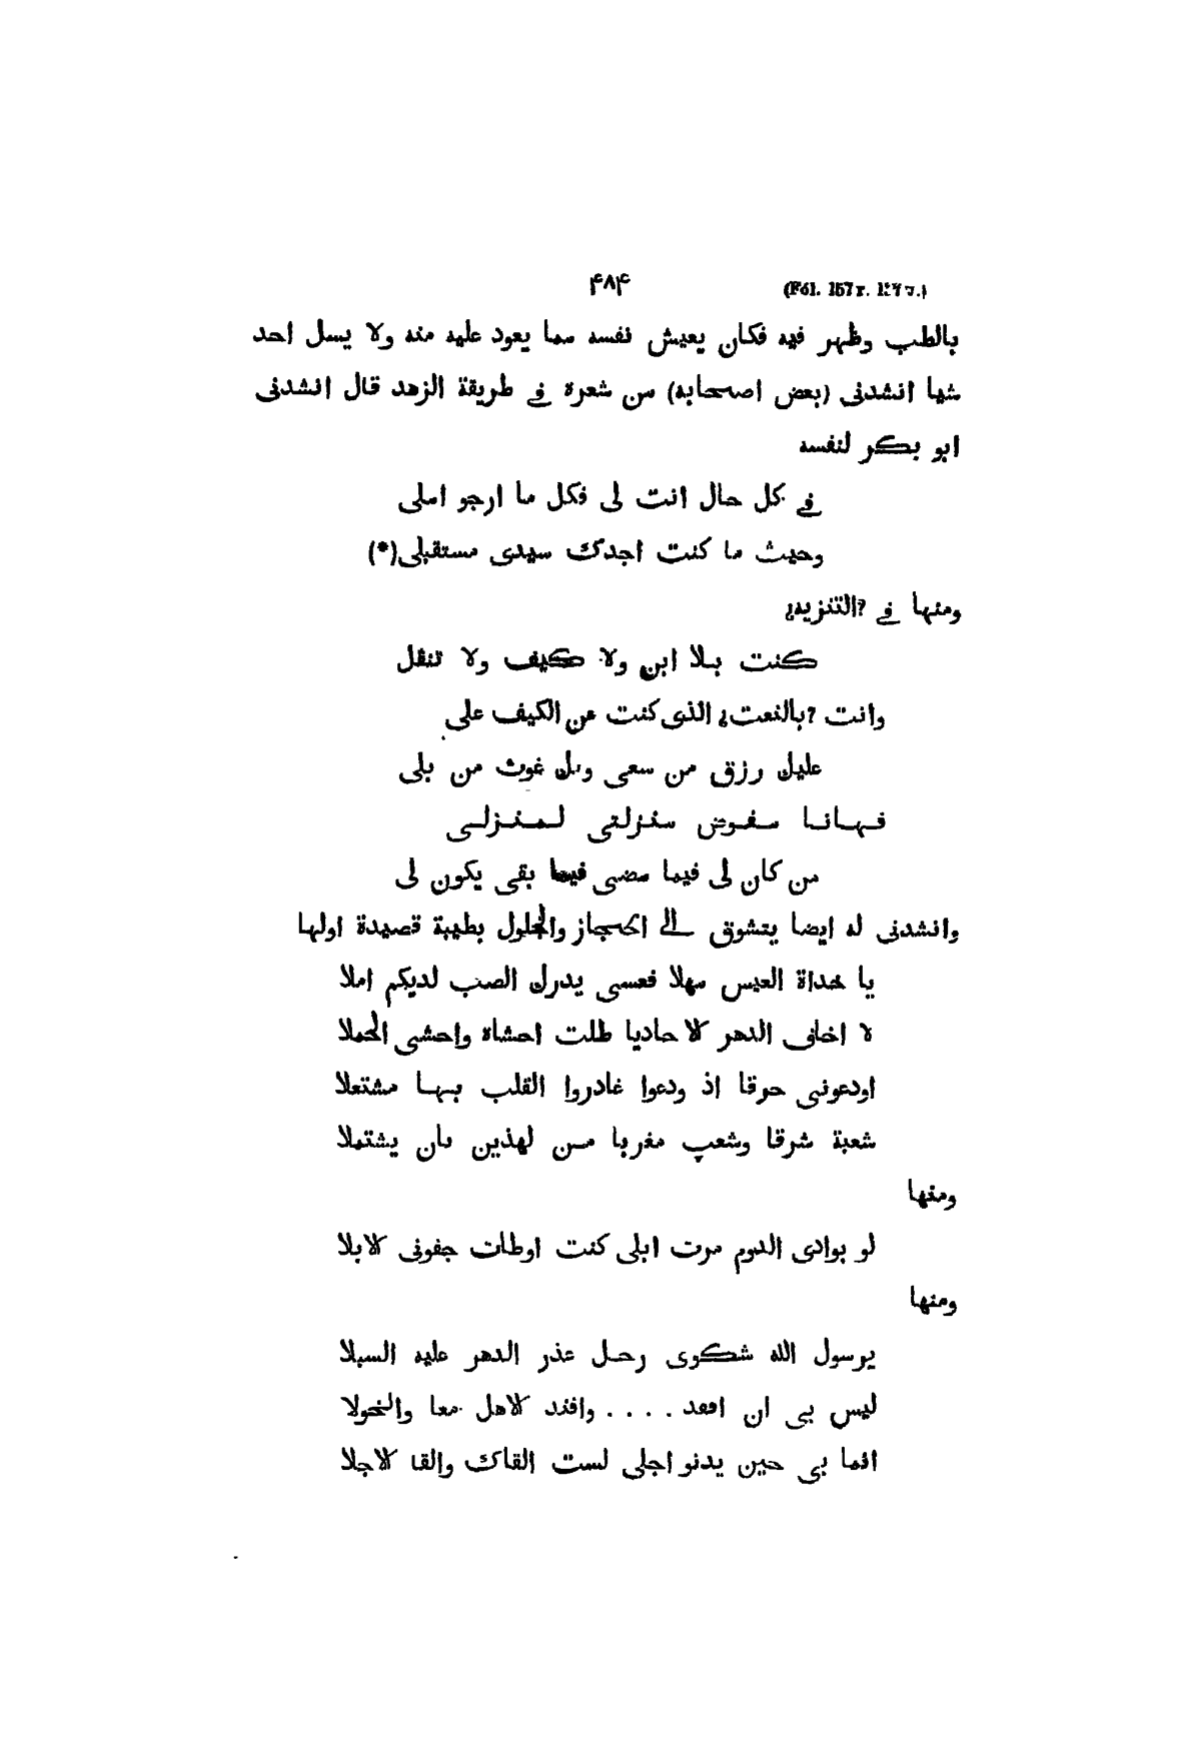 (Fól. 157 r. ۴۸۴
بالطب وظهر فيه فكان يعيش نفسه مما يعود عليه منه ولا يسل احد
شيا انشدنى (بعض اصحابه) من شعرة فى طريقة الزهد قال انشدنى
ابو بكر لنفسه
فى كل حال انت لى فكل ما ارجو املى
وحيث ما كنت اجدك سيدى مستقبلى(*)
ومنها فى ?التنزيه¿
كنت بلا ابن ولا كيف ولا تنقل
وانت ?بالنعت¿ الذى كنت عن الكيف على
عليك رزق من سعى وبك غوث من بلى
فهانا مفوض منزلتى لمنزلى
من كان لى فيما مضى فيما بقى يكون لى
وانشدنى له ايضا يتشوق الى الحجاز والحلول بطيبة قصيدة اولها
يا حداة العيس مهلا فعسى يدرك الصب لديكم املا
لا اخافى الدهر كلا حاديا طلت احشاه واحشى الحملا
اودعونى حرقا اذ ودعوا غادروا القلب بها مشتعلا
شعبة شرقا وشعب مغربا من لهذين بان يشتملا
ومنها
لو بوادى الدوم مرت ابلى كنت اوطات جفونى كلابلا
ومنها
يرسول الله شكوى رجل عذر الدهر عليه السبلا
ليس بى ان افقد .... وافقد كلاهل معا والخولا
انما بى حين يدنو اجلى لست القاك والقا كلاجلا